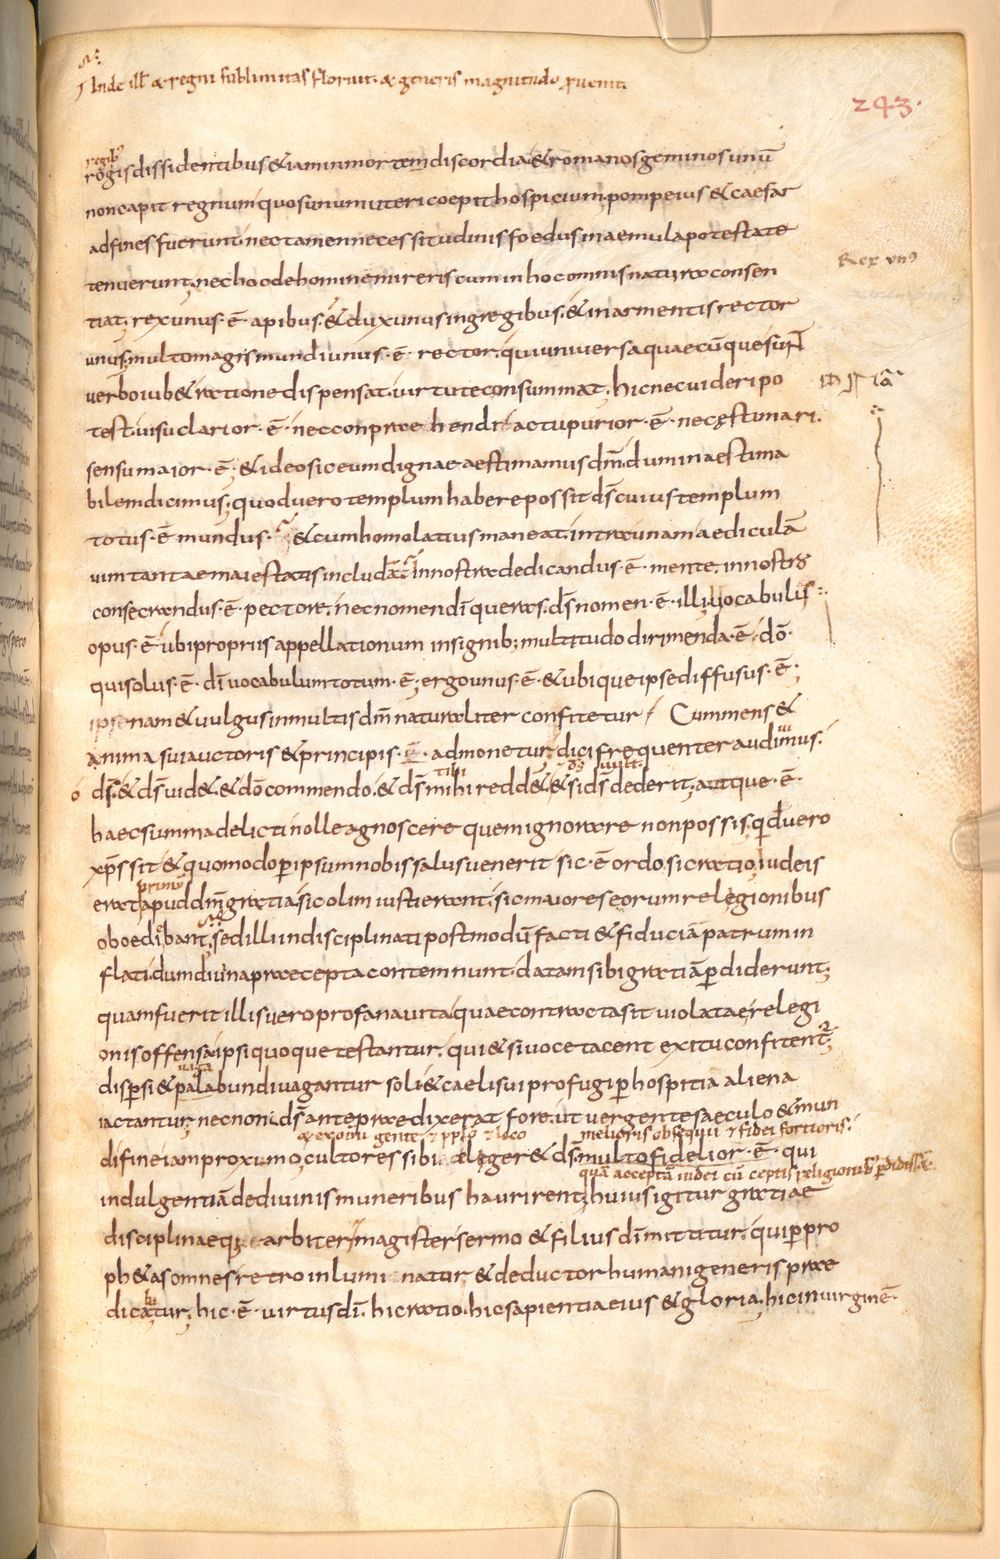 Inde ill & regni sublimitas floruit. & generis magnitudo ꝓuenit.
243.
regib;
rogis dissidentibus & iam in mortem discordia & romanos geminos unū
non capit regnum quos unum uteri coepit hospicium. pompeius & caesar
adfines fuerunt. nec tamen necessitudinis foedus in aemula potestate
tenuerunt; nec hoc de homine mireris cum in hoc omnis natura consen
Rex un᾿
tiat. rex unus ·ē· apibus. & dux unus in gregibus. & in armentis rector
unus; multo magis mundi unus ·ē· rector. qui uniuersa quaecūque sunt
uerbo iub& ratione dispensat. uirtute consummat. hic nec uideri po
test. uisu clarior ·ē· nec conpraehendi tactu purior ·ē· nec ęstimari.
sensu maior ·ē· & ideo sic eum digne aestimamus dm̄. dum inaestima
bilem dicimus. quod uero templum habere possit ds̄ cuius templum
totus ·ē· mundus. & cum homo latius maneat. intra unam aediculā
uim tantae maiestatis includā. in nostra dedicandus ·ē· mente. in nostro
consecrandus ·ē· pectore. nec nomen dī queras. ds̄ nomen ·ē· illi; uocabulis
opus ·ē· ubi propriis appellationum insignib; multitudo dirimenda ·ē· dō.
qui solus ·ē· dī uocabulum totum ·ē·; ergo unus ·ē· & ubique ipse diffusus ·ē·;
ipse nam & uulgus in multis dm̄ naturaliter confitetur. Cum mens &
anima sui auctoris & principis ·ē· admonetur; dici frequenter audimus.
tibi
o ds̄. & ds̄ uid&. & dō commendo. & ds̄ mihi redd& & si ds̄ dederit; atque ·ē·
haec summa delicti nolle agnoscere quem ignorare non possis. qđ uero
xp̄s sit & quomodo ꝑ ipsum nobis salus uenerit sic ·ē· ordo. sic ratio. iudeis
primū
erat apud dm̄ gratia. sic olim iusti erant. sic maiores eorum relegionibus
oboediebant. sed illi indisciplinati postmodū facti & fiduciā patrum in
flati. dum diuina praecepta contemnunt. datam sibi gratiā ꝑdiderunt;
quam fuerit illis uero profana uita. quae contracta sit uiolatae relegi
onis offensa ipsi quoque testantur. qui & si uoce tacent exitu confitent᾿;
disꝑsi & palabundi uagantur soli & caeli sui profugi ꝑ hospitia aliena
iactantur; necnon ds̄ ante praedixerat fore. ut uergente saeculo & mun
& ex omni gente & pplo & loco melioris obsequii & fidei fortioris.
di fine iam proxumo; cultores sibi adleger& ds̄ multo fidelior ·ē· qui
quā acceptā iudei cū ceptis religionib; ꝑdidissē
indulgentiā de diuinis muneribus haurirent; huius igitur gratiae
disciplinaeq; arbiter; magister sermo & filius dī mittitur. qui ꝑ pro
ph&as omnes retro inluminatur & deductor humani generis prae
dicatur; hic ·ē· uirtus dī. hic ratio. hic sapientia eius & gloria. hic in uirginē·